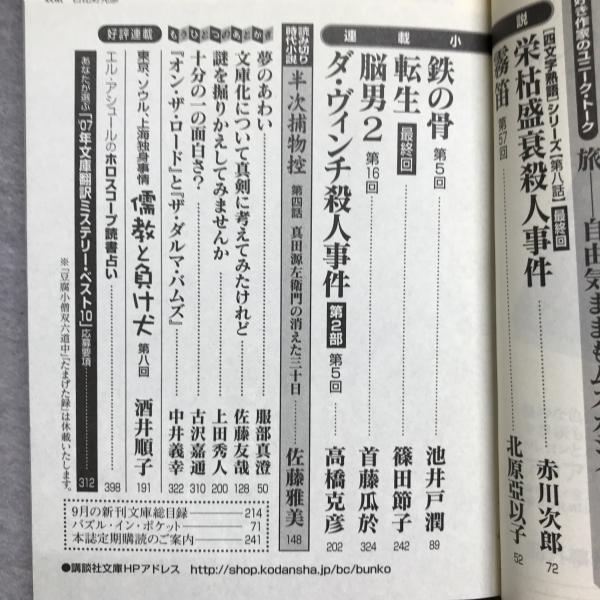 好き作家のユニーク・トーク
旅――自由気ままも
説
[四文字熟語]シリーズ【第八話】最終回
栄枯盛衰殺人事件 赤川次郎 72
霧笛 第57回 北原亞以子 52
小
載
連
鉄の骨 第5回 池井戸潤 89
転生 最終回 篠田節子 242
脳男2 第16回 首藤瓜於 324
ダ・ヴィンチ殺人事件 第2部 第5回 高橋克彦 202
読み切り時代小説
半次捕物控 第四話 真田源左衛門の消えた三十日 佐藤雅美 148
もうひとつのあとがき
夢のあわい 服部真澄 50
文庫化について真剣に考えてみたけれど 佐藤友哉 128
謎を掘りかえしてみませんか 上田秀人 200
十分の一の面白さ? 古沢嘉通 310
『オン・ザ・ロード』と『ザ・ダルマ・バムズ』 中井義幸 322
好評連載
東京、ソウル、上海独身事情 儒教と負け犬 第八回 酒井順子 191
エル・アシュールのホロスコープ読書占い 398
あなたが選ぶ「'07年文庫翻訳ミステリー・ベスト10」応募要項 312
※『豆腐小僧双六道中』『たまげた録』は休載いたします。
9月の新刊文庫総目録 214
パズル・イン・ポケット 71
本誌定期購読のご案内 241
●講談社文庫HPアドレス http://shop.kodansha.jp/bc/bunko